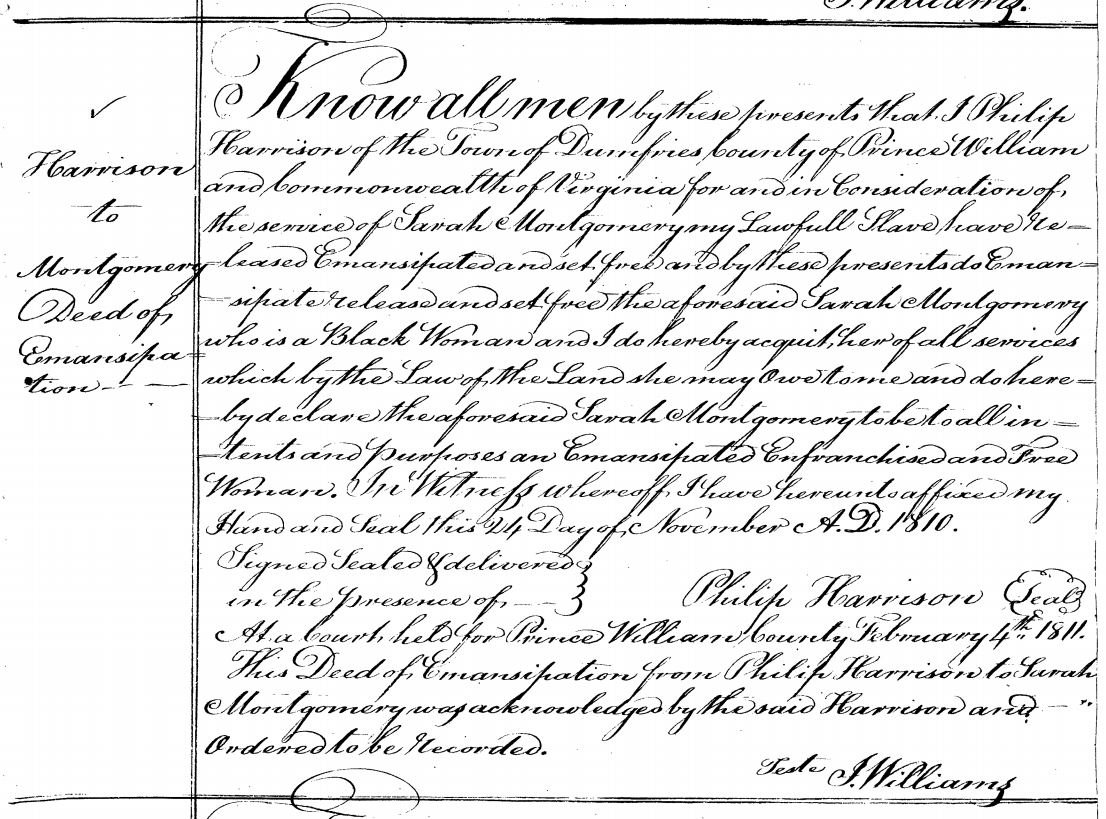 J. Williams.
✓
Harrison
to
Montgomery
Deed of
Emansipa=
tion
Know all men by these presents that I Philip
Harrison of the Town of Dumfries County of Prince William
and Commonwealth of Virginia for and in Consideration of
the service of Sarah Montgomery my Lawfull Slave, have re=
leased Emansipated and set free and by these presents do Eman=
=sipate release and set free the aforesaid Sarah Montgomery
who is a Black Woman and I do hereby acquit her of all services
which by the Law of the Land she may Owe to me and do here=
=by declare the aforesaid Sarah Montgomery to be to all in=
=tents and purposes an Emansipated Enfranchised and Free
Woman. In Witness whereoff I have hereunto affixed my
Hand and Seal this 24 Day of November A.D. 1810.
Signed Sealed & delivered
in the presence of
Philip Harrison Seal
At a Court held for Prince William County February 4th 1811.
This Deed of Emansipation from Philip Harrison to Sarah
Montgomery was acknowledged by the said Harrison and
Ordered to be recorded.
Teste J. Williams